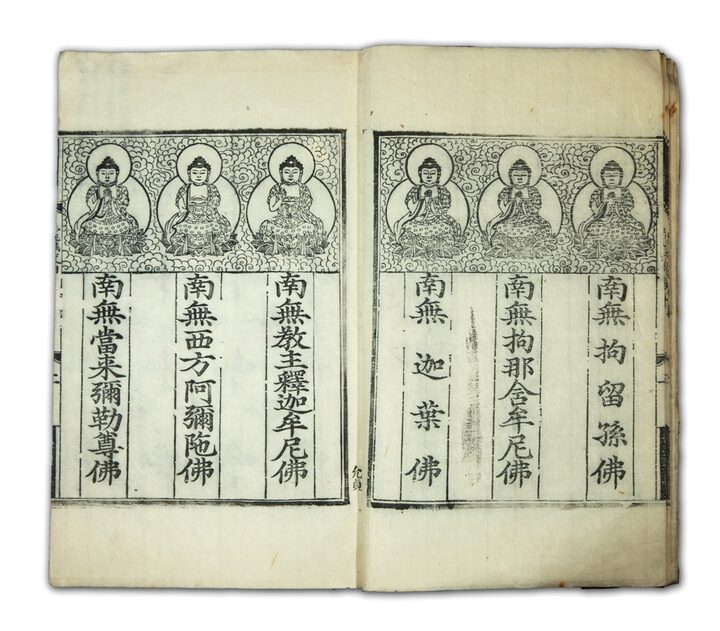 南無拘留孫佛
南無拘那舍牟尼佛
南無迦葉佛
南無教主釋迦牟尼佛
南無西方阿彌陁佛
南無當來彌勒尊佛